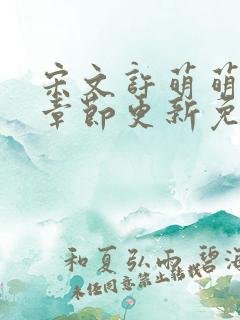 宋文许萌萌
章节更新免
和夏弘雨 碧海
未经同意禁止转载